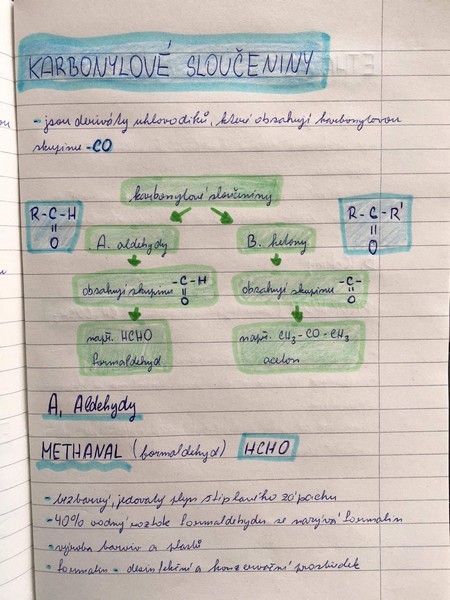 KARBONYLOVÉ SLOUČENINY
- jsou deriváty uhlovodíků, které obsahují karbonylovou
skupinu -CO
karbonylové sloučeniny
R-C-H
||
O
R-C-R'
||
O
A. aldehydy
B. ketony
obsahují skupinu -C-H
||
O
obsahují skupinu -C-
||
O
např. HCHO
formaldehyd
např. CH₃-CO-CH₃
aceton
A, Aldehydy
METHANAL (formaldehyd) HCHO
- bezbarvý, jedovatý plyn štiplavého zápachu
- 40% vodný roztok formaldehydu se nazývá formalin
- výroba barviv a plastů
- formalin - desinfekční a konzervační prostředek